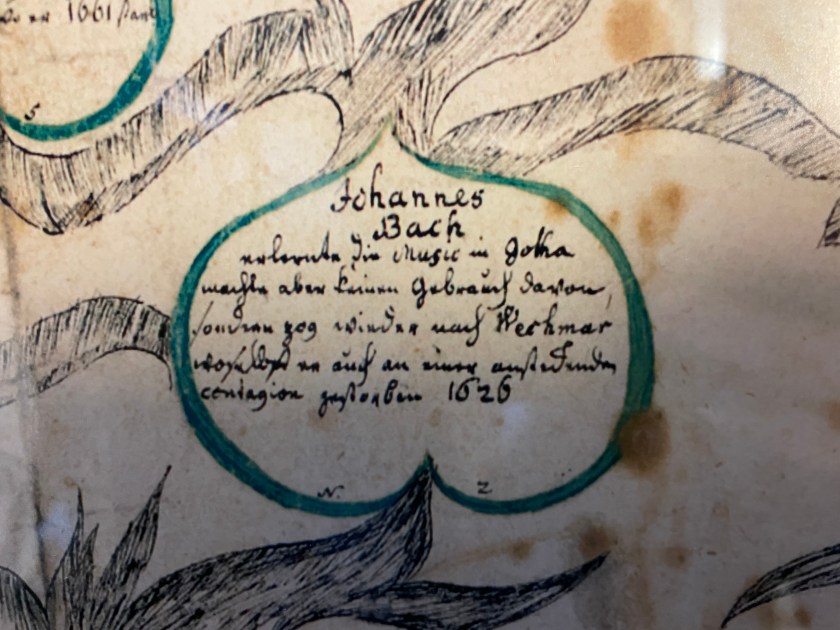 er 1661
5
Johannes
Bach
erlernte die Music in Gotha
machte aber keinen Gebrauch davon,
sondern zog wieder nach Wechmar
woselbst er auch an einer ansteckenden
contagion gestorben 1626
N. 2